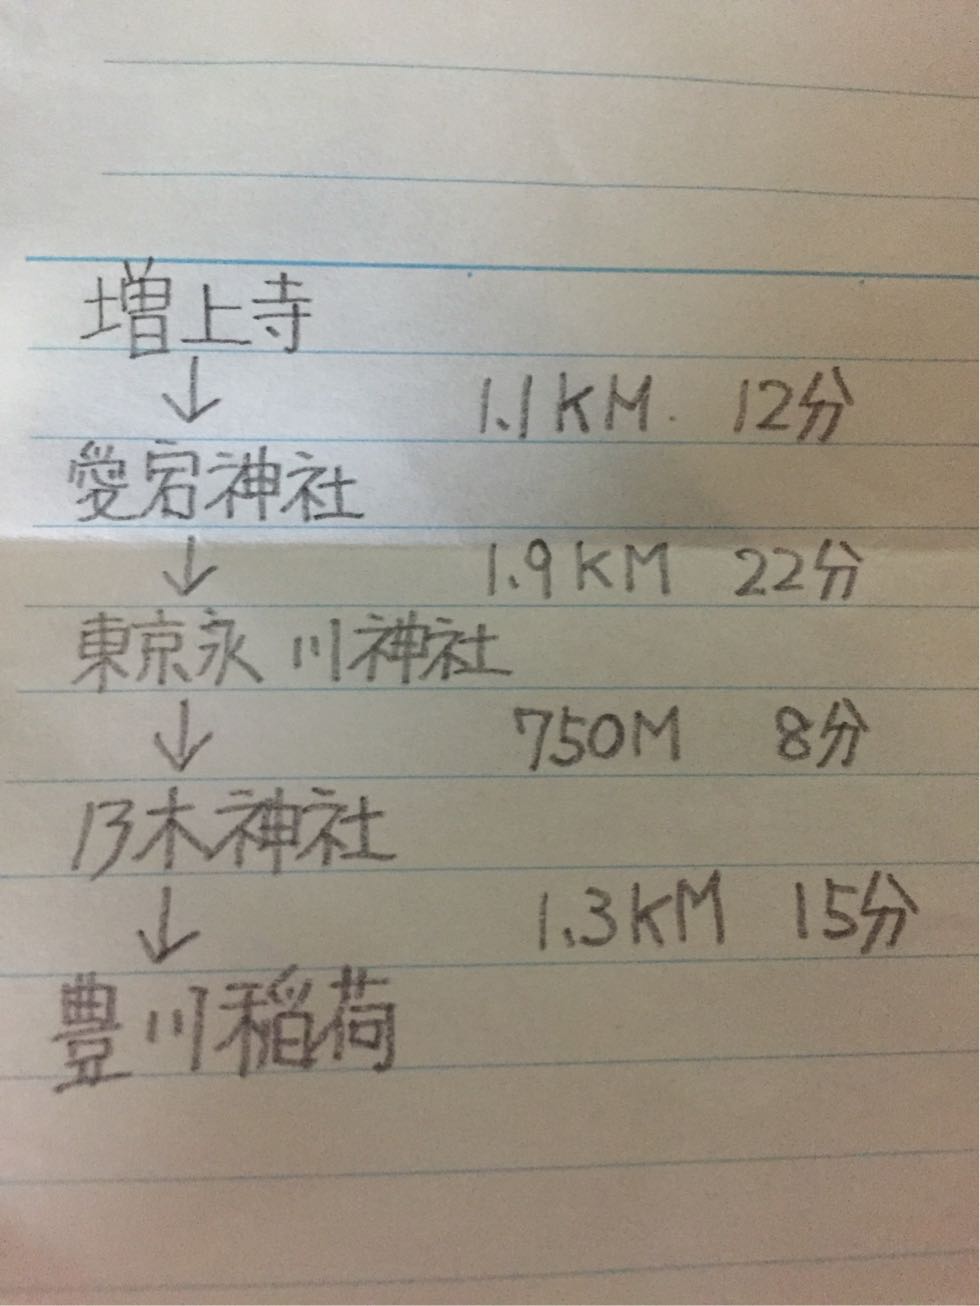 増上寺
↓ 1.1KM. 12分
愛宕神社
↓ 1.9KM 22分
東京永川神社
↓ 750M 8分
乃木神社
↓ 1.3KM 15分
豊川稲荷